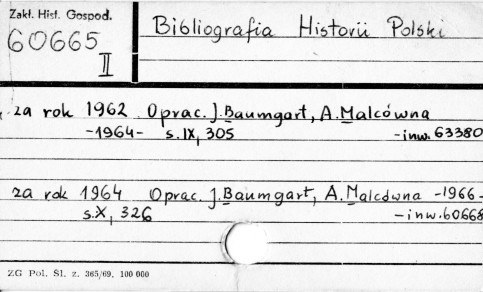 Zakł. Hist. Gospod.
60665
II
Bibliografia Historii Polski
za rok 1962 Oprac. J. Baumgart, A. Malcówna
-1964- s. IX, 305 -inw. 63380
za rok 1964 Oprac. J. Baumgart, A. Malcówna -1966-
s. X, 326 -inw. 60668
ZG Pol. Śl. z. 365/69. 100 000